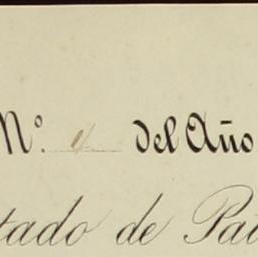 Nº 1 del Año
tado de Pa